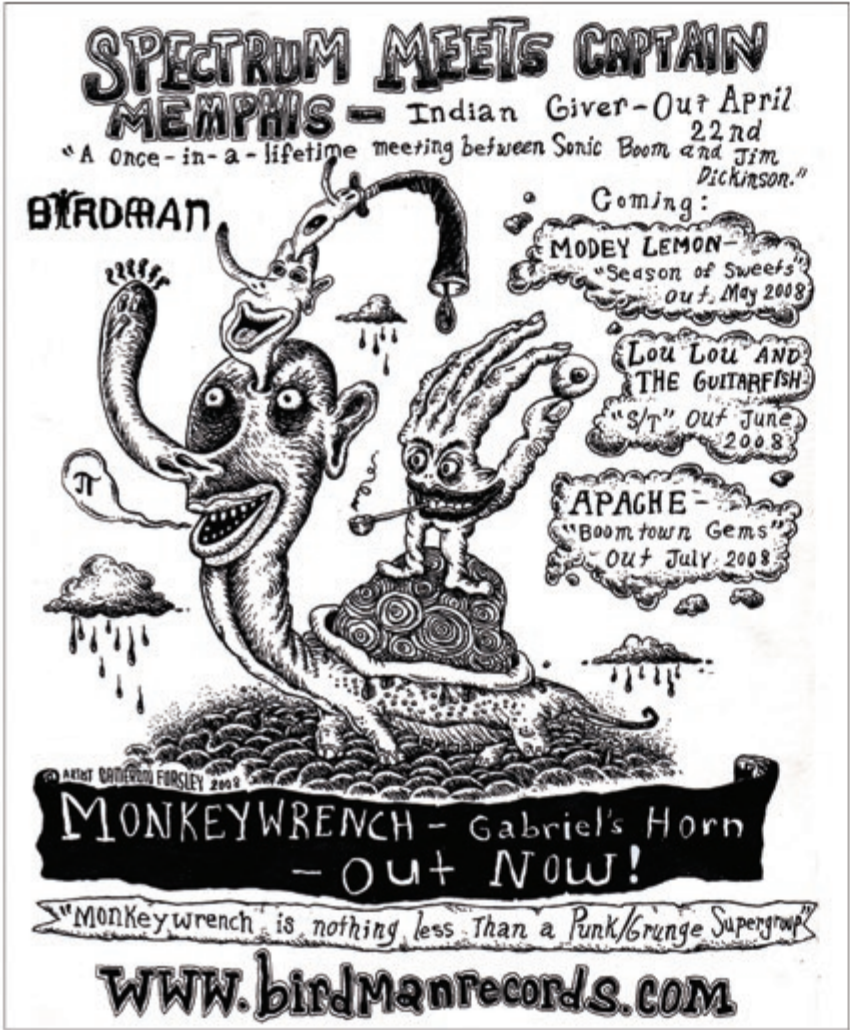 SPECTRUM MEETS CAPTAIN
MEMPHIS - Indian Giver-Out April
22nd
"A Once-in-a-lifetime meeting between Sonic Boom and Jim
Dickinson."
BIRDMAN
Coming:
MODEY LEMON-
"Season of Sweets"
out May 2008
LOU LOU AND
THE GUITARFISH-
"S/T" Out June
2008
π
APACHE-
"Boomtown Gems"
Out July 2008
© ARTIST CAMERON FORSLEY 2008
MONKEYWRENCH - Gabriel's Horn
- OUT NOW!
"Monkeywrench is nothing less Than a Punk/Grunge Supergroup"
WWW.birdmanrecords.com